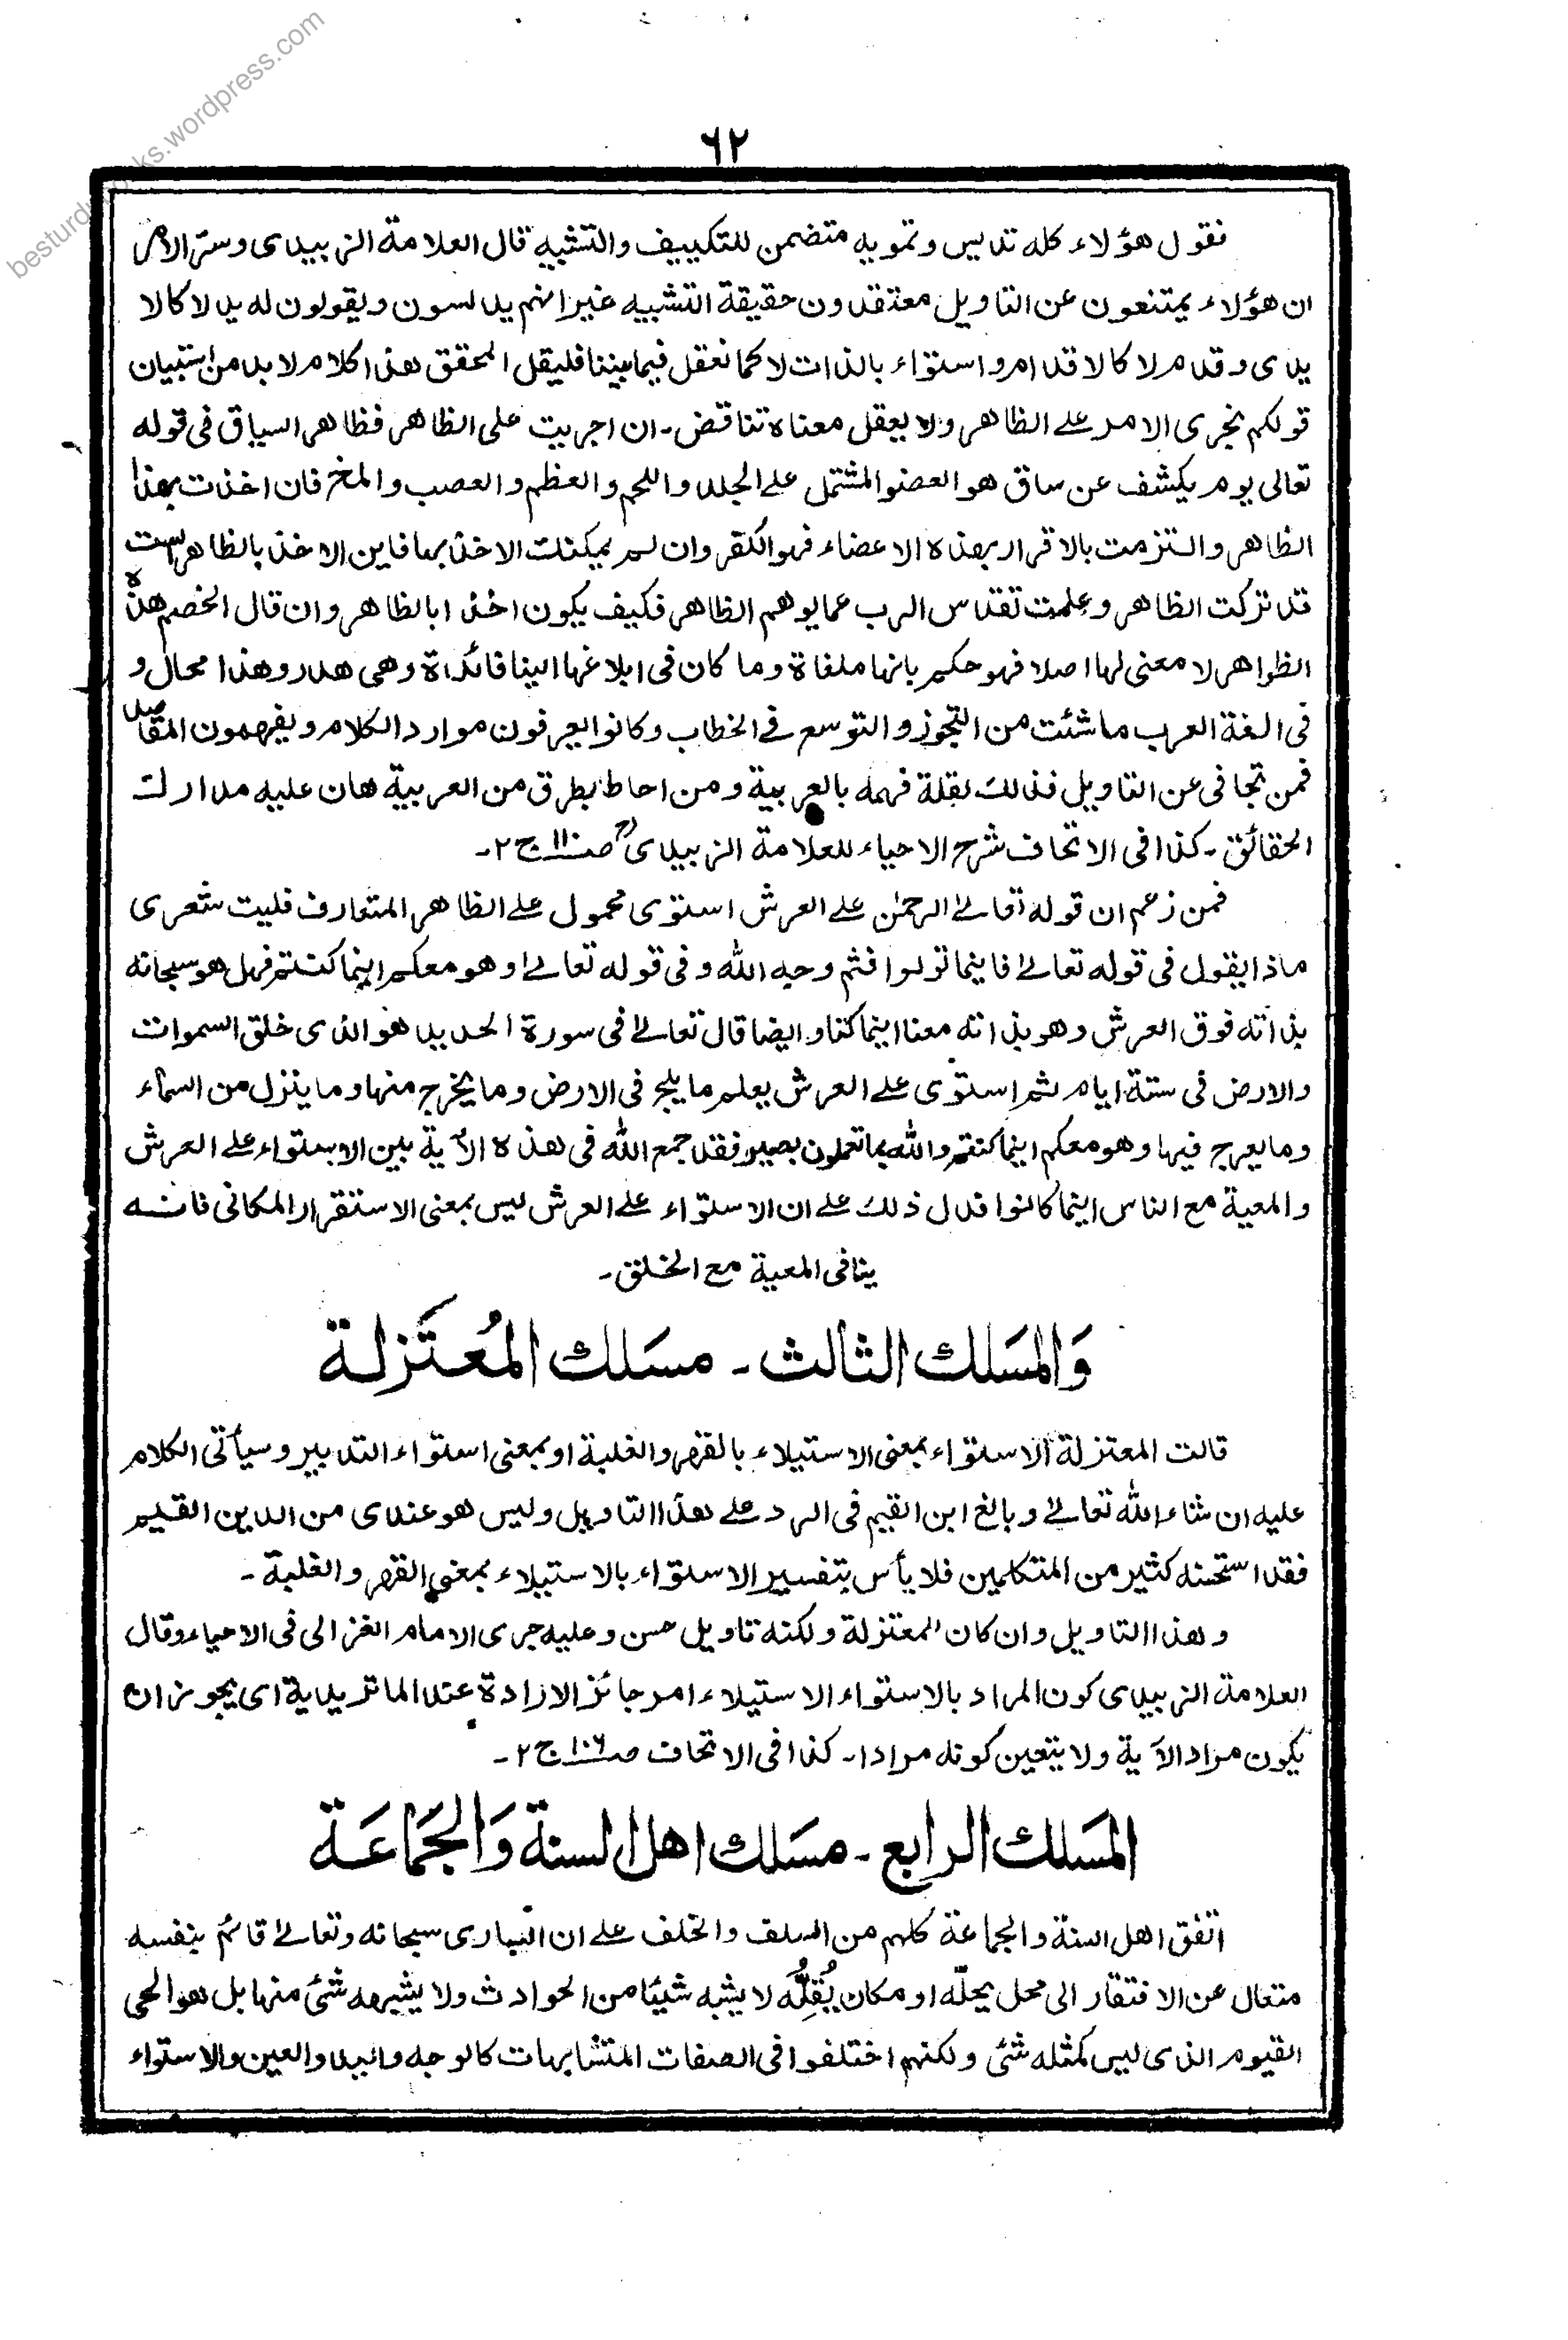 besturdubooks.wordpress.com
٦٢
فقول هؤلاء كله تدليس وتمويه متضمن للتكييف والتشبيه قال العلامة الزبيدى وستر الامر
ان هؤلاء يمتنعون عن التاويل معتقدون حقيقة التشبيه غير انهم يدلسون ويقولون له يد لا كالا
يدى وقدم لا كالاقدام واستواء بالذات لا كما نعقل فيما بيننا فليقل المحقق هذا كلام لا بد من استبيان
قولكم نجرى الامر على الظاهر ولا يعقل معناه تناقض - ان اجريت على الظاهر فظاهر السياق فى قوله
تعالى يوم يكشف عن ساق هو العضو المشتمل على الجلد واللحم والعظم والعصب والمخ فان اخذت بهذا
الظاهر والتزمت بالاقرار بهذه الاعضاء فهو الكفر وان لم يمكنك الاخذ بها فاين الاخذ بالظاهر الست
قد تركت الظاهر وعلمت تقدس الرب عما يوهم الظاهر فكيف يكون اخذا بالظاهر وان قال الخصم هذه
الظواهر لا معنى لها اصلا فهو حكم بانها ملغاة وما كان فى ابلاغها الينا فائدة وهى هدر وهذا محال و
فى لغة العرب ما شئت من التجوز والتوسع فى الخطاب وكانوا يعرفون موارد الكلام ويفهمون المقاصد
فمن تجافى عن التاويل فذالك لقلة فهمه بالعربية ومن احاط بطرق من العربية هان عليه مدارك
الحقائق - كذا فى الاتحاف شرح الاحياء للعلامة الزبيدى ص١١٠ ج٢-
فمن زعم ان قوله تعالى الرحمٰن على العرش استوى محمول على الظاهر المتعارف فليت شعرى
ماذا يقول فى قوله تعالى فاينما تولوا فثم وجه الله وفى قوله تعالى وهو معكم اينما كنتم فهل هو سبحانه
بذاته فوق العرش وهو بذاته معنا اينما كنا وايضا قال تعالى فى سورة الحديد هو الذى خلق السموات
والارض فى ستة ايام ثم استوى على العرش يعلم ما يلج فى الارض وما يخرج منها وما ينزل من السماء
وما يعرج فيها وهو معكم اينما كنتم والله بما تعملون بصير فقد جمع الله فى هذه الآية بين الاستواء على العرش
والمعية مع الناس اينما كانوا فدل ذلك على ان الاستواء على العرش ليس بمعنى الاستقرار المكانى فانه
ينافى المعية مع الخلق-
وَالمَسَلك الثالث - مسَلك المُعتَزلة
قالت المعتزلة الاستواء بمعنى الاستيلاء بالقهر والغلبة او بمعنى استواء التدبير وسيأتى الكلام
عليه ان شاء الله تعالى وبالغ ابن القيم فى الرد على هذا التاويل وليس هو عندى من الدين القيم
فقد استحسنه كثير من المتكلمين فلا بأس بتفسير الاستواء بالاستيلاء بمعنى القهر والغلبة -
وهذا التاويل وان كان للمعتزلة ولكنه تاويل حسن وعليه جرى الامام الغزالى فى الاحياء وقال
العلامة الزبيدى كون المراد بالاستواء الاستيلاء امر جائز الارادة عند الماتريدية اى يجوز ان
يكون مراد الآية ولا يتعين كونه مرادا- كذا فى الاتحاف ص١٠٦ ج٢-
المَسَلك الرابع - مسَلك اهل السنة وَالجَمَاعَة
اتفق اهل السنة والجماعة كلهم من السلف والخلف على ان البارى سبحانه وتعالى قائم بنفسه
متعال عن الافتقار الى محل يحلّه او مكان يُقِلُّه لا يشبه شيئا من الحوادث ولا يشبهه شئ منها بل هو الحى
القيوم الذى ليس كمثله شئ ولكنهم اختلفوا فى الصفات المتشابهات كالوجه واليد والعين والاستواء